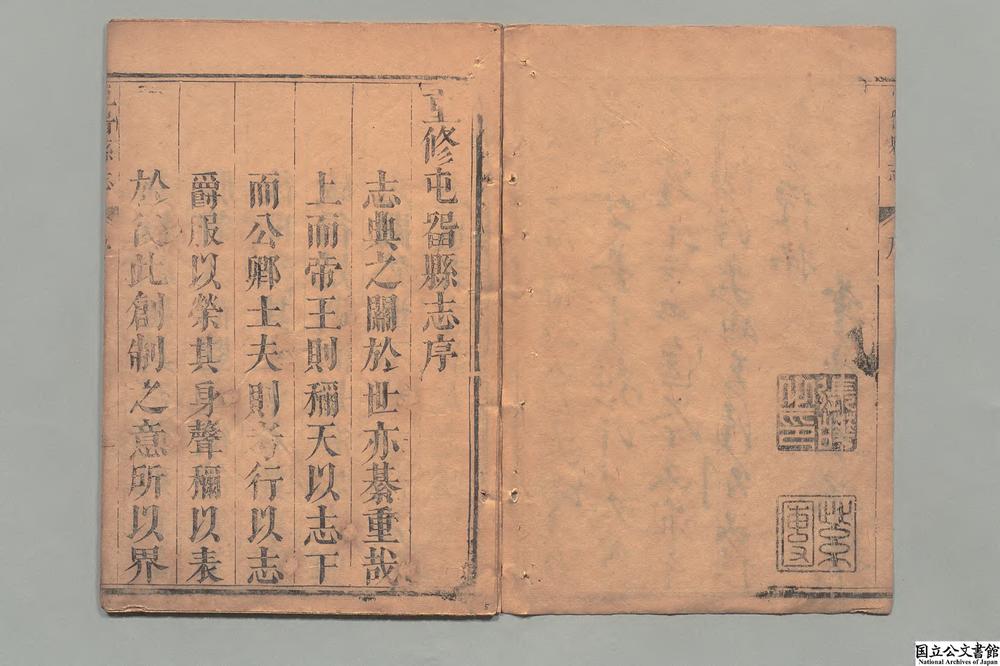 縣志
序
重修屯留縣志序
志典之關於世亦綦重哉
上而帝王則稱天以志下
而公卿士夫則考行以志
爵服以榮其身聲稱以表
於後此創制之意所以界
国立公文書館
National Archives of Japan